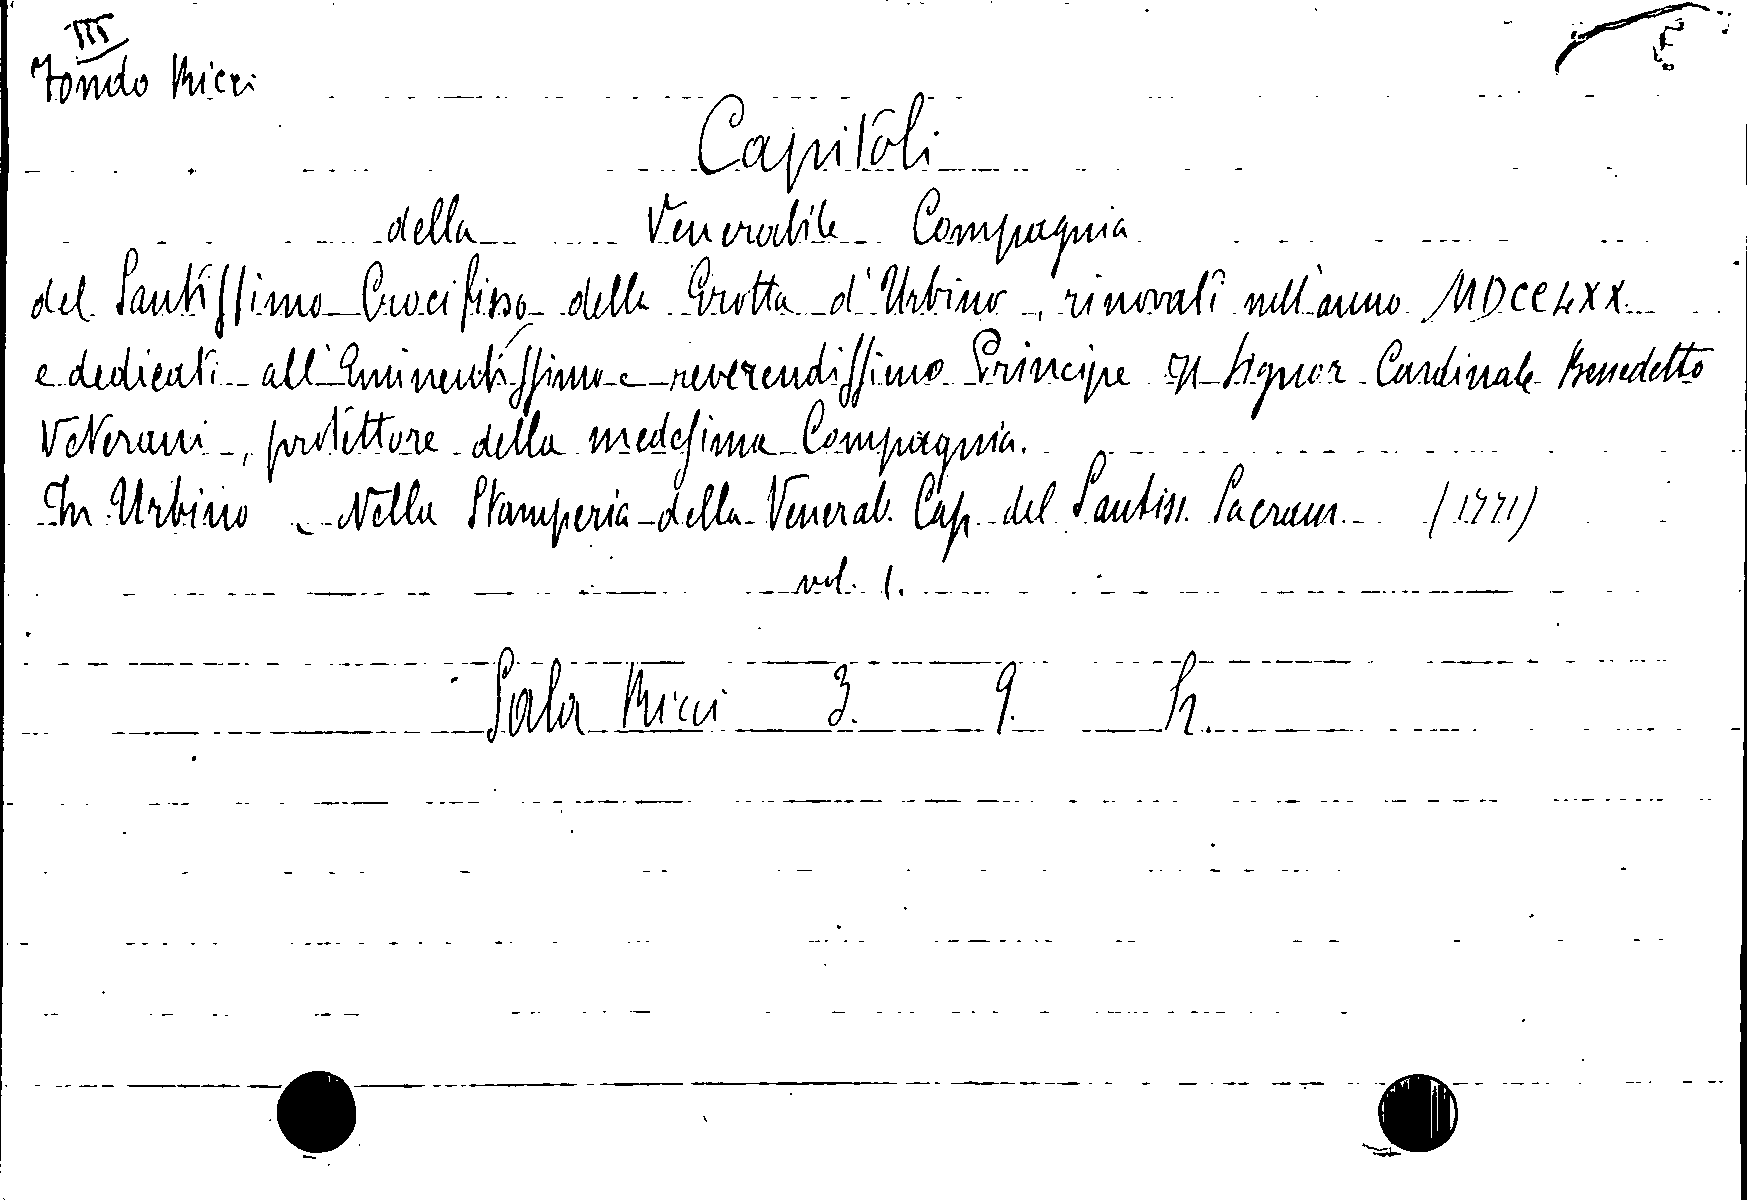 III
Fondo Ricci
Capitoli
della Venerabile Compagnia
del Santissimo Crocifisso della Grotta d'Urbino, rinovati nell'anno MDCCLXX
e dedicati all'Eminentissimo e reverendissimo Principe il Signor Cardinale Benedetto
Veterani, protettore della medesima Compagnia.
In Urbino, Nella Stamperia della Venerab. Cap. del Santiss. Sacram. (1771)
vol. 1.
Sala Ricci 3. 9. h.